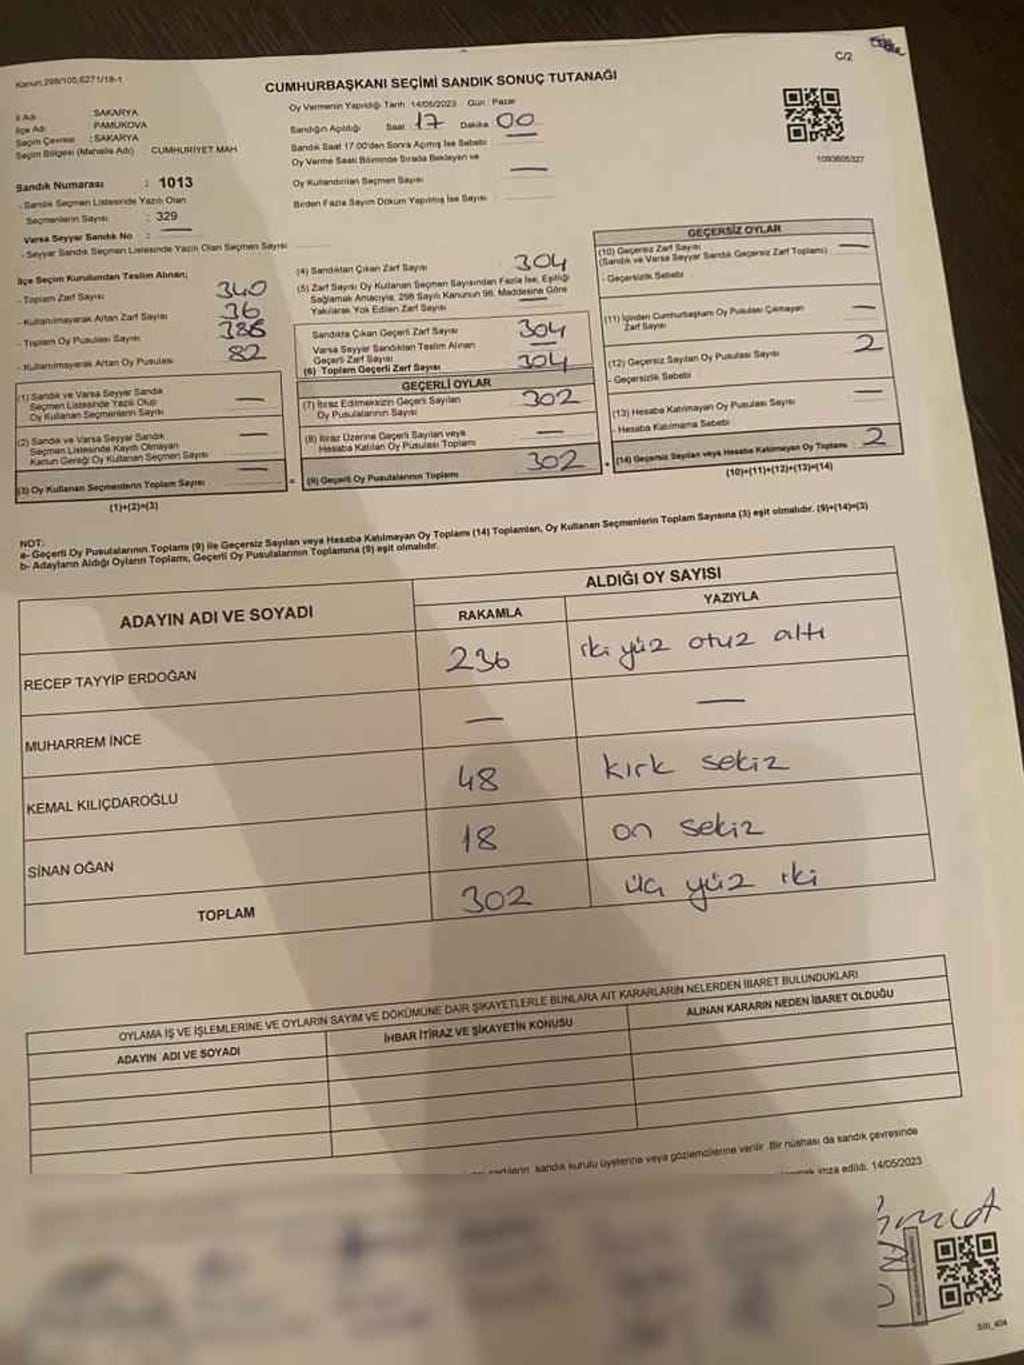 Kanun:298/100,6271/18-1
C/2
CUMHURBAŞKANI SEÇİMİ SANDIK SONUÇ TUTANAĞI
İl Adı : SAKARYA
İlçe Adı : PAMUKOVA
Seçim Çevresi : SAKARYA
Seçim Bölgesi (Mahalle Adı) CUMHURİYET MAH
Sandık Numarası : 1013
- Sandık Seçmen Listesinde Yazılı Olan
Seçmenlerin Sayısı : 329
Varsa Seyyar Sandık No : —
- Seyyar Sandık Seçmen Listesinde Yazılı Olan Seçmen Sayısı
Oy Vermenin Yapıldığı Tarih :14/05/2023 Gün : Pazar
Sandığın Açıldığı Saat : 17 Dakika : 00
Sandık Saat 17:00'den Sonra Açılmış İse Sebebi : —
Oy Verme Saati Bitiminde Sırada Bekleyen ve
Oy Kullandırılan Seçmen Sayısı : —
Birden Fazla Sayım Döküm Yapılmış İse Sayısı :
1093605327
İlçe Seçim Kurulundan Teslim Alınan;
- Toplam Zarf Sayısı 340
- Kullanılmayarak Artan Zarf Sayısı 36
- Toplam Oy Pusulası Sayısı 386
- Kullanılmayarak Artan Oy Pusulası 82
(1) Sandık ve Varsa Seyyar Sandık
Seçmen Listesinde Yazılı Olup
Oy Kullanan Seçmenlerin Sayısı —
(2) Sandık ve Varsa Seyyar Sandık
Seçmen Listesinde Kayıtlı Olmayan
Kanun Gereği Oy Kullanan Seçmen Sayısı —
(3) Oy Kullanan Seçmenlerin Toplam Sayısı —
(1)+(2)=(3)
(4) Sandıktan Çıkan Zarf Sayısı 304
(5) Zarf Sayısı Oy Kullanan Seçmen Sayısından Fazla İse, Eşitliği
Sağlamak Amacıyla, 298 Sayılı Kanunun 98. Maddesine Göre
Yakılarak Yok Edilen Zarf Sayısı —
Sandıkta Çıkan Geçerli Zarf Sayısı 304
Varsa Seyyar Sandıktan Teslim Alınan
Geçerli Zarf Sayısı —
(6) Toplam Geçerli Zarf Sayısı 304
GEÇERLİ OYLAR
(7) İtiraz Edilmeksizin Geçerli Sayılan
Oy Pusulalarının Sayısı 302
(8) İtiraz Üzerine Geçerli Sayılan veya
Hesaba Katılan Oy Pusulası Toplamı —
= (9) Geçerli Oy Pusulalarının Toplamı 302
GEÇERSİZ OYLAR
(10) Geçersiz Zarf Sayısı —
(Sandık ve Varsa Seyyar Sandık Geçersiz Zarf Toplamı)
- Geçersizlik Sebebi
(11) İçinden Cumhurbaşkanı Oy Pusulası Çıkmayan
Zarf Sayısı —
(12) Geçersiz Sayılan Oy Pusulası Sayısı 2
- Geçersizlik Sebebi
(13) Hesaba Katılmayan Oy Pusulası Sayısı —
- Hesaba Katılmama Sebebi
+ (14) Geçersiz Sayılan veya Hesaba Katılmayan Oy Toplamı : 2
(10)+(11)+(12)+(13)=(14)
NOT:
a- Geçerli Oy Pusulalarının Toplamı (9) ile Geçersiz Sayılan veya Hesaba Katılmayan Oy Toplamı (14) Toplamları, Oy Kullanan Seçmenlerin Toplam Sayısına (3) eşit olmalıdır. (9)+(14)=(3)
b- Adayların Aldığı Oyların Toplamı, Geçerli Oy Pusulalarının Toplamına (9) eşit olmalıdır.
ADAYIN ADI VE SOYADI ALDIĞI OY SAYISI
RAKAMLA YAZIYLA
RECEP TAYYİP ERDOĞAN 236 iki yüz otuz altı
MUHARREM İNCE — —
KEMAL KILIÇDAROĞLU 48 kırk sekiz
SİNAN OĞAN 18 on sekiz
TOPLAM 302 üç yüz iki
OYLAMA İŞ VE İŞLEMLERİNE VE OYLARIN SAYIM VE DÖKÜMÜNE DAİR ŞİKAYETLERLE BUNLARA AİT KARARLARIN NELERDEN İBARET BULUNDUKLARI
ADAYIN ADI VE SOYADI İHBAR İTİRAZ VE ŞİKAYETİN KONUSU ALINAN KARARIN NEDEN İBARET OLDUĞU
sandık kurulu üyelerine veya gözlemcilerine verilir. Bir nüshası da sandık çevresinde
imza edildi. 14/05/2023